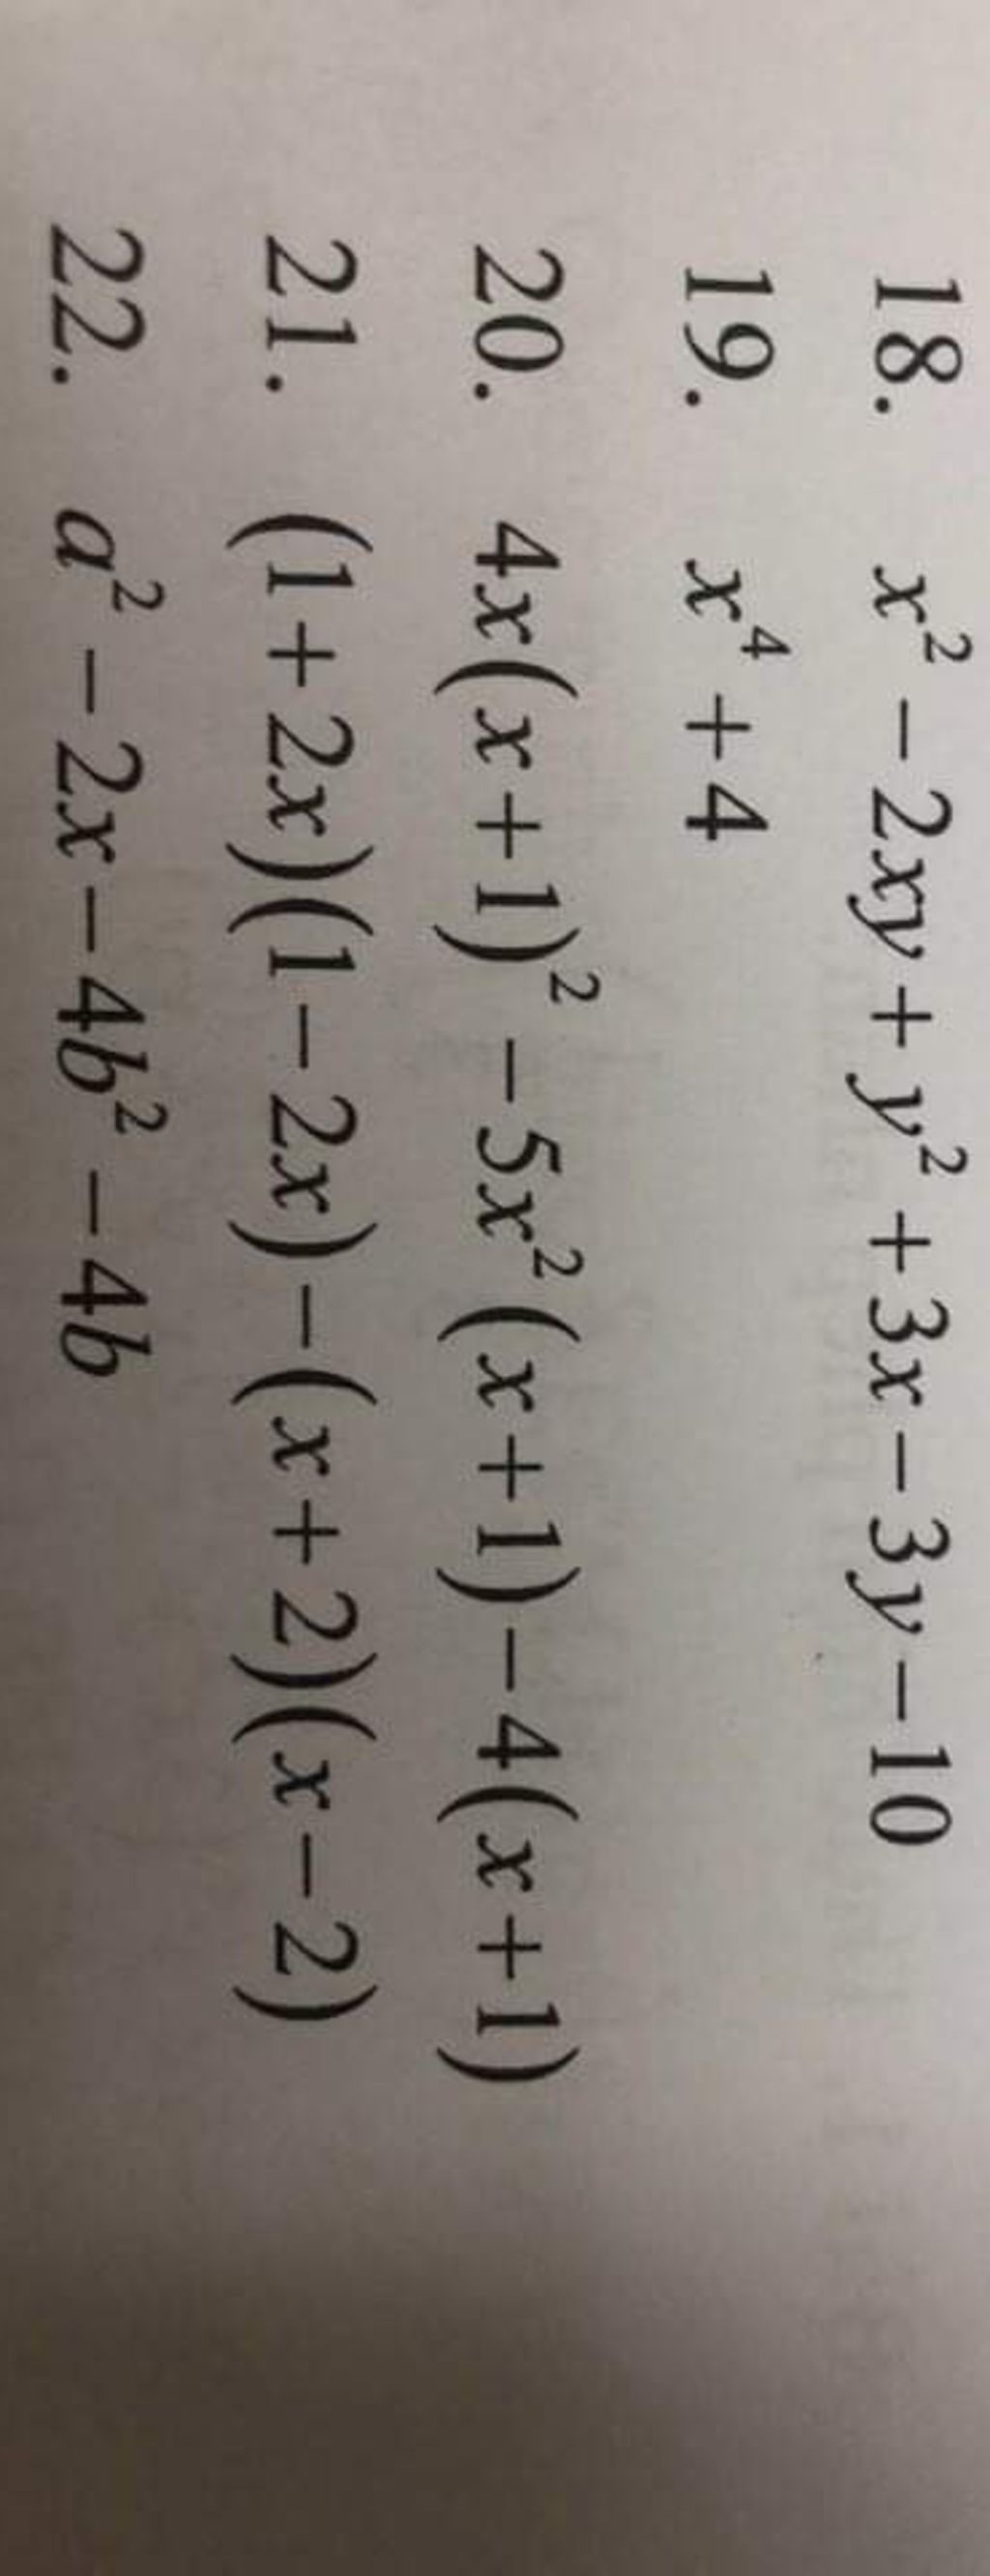 18. x² − 2xy + y² + 3x − 3y − 10
19. x⁴ + 4
20. 4x(x + 1)² − 5x²(x + 1) − 4(x + 1)
21. (1 + 2x)(1 − 2x) − (x + 2)(x − 2)
22. a² − 2x − 4b² − 4b